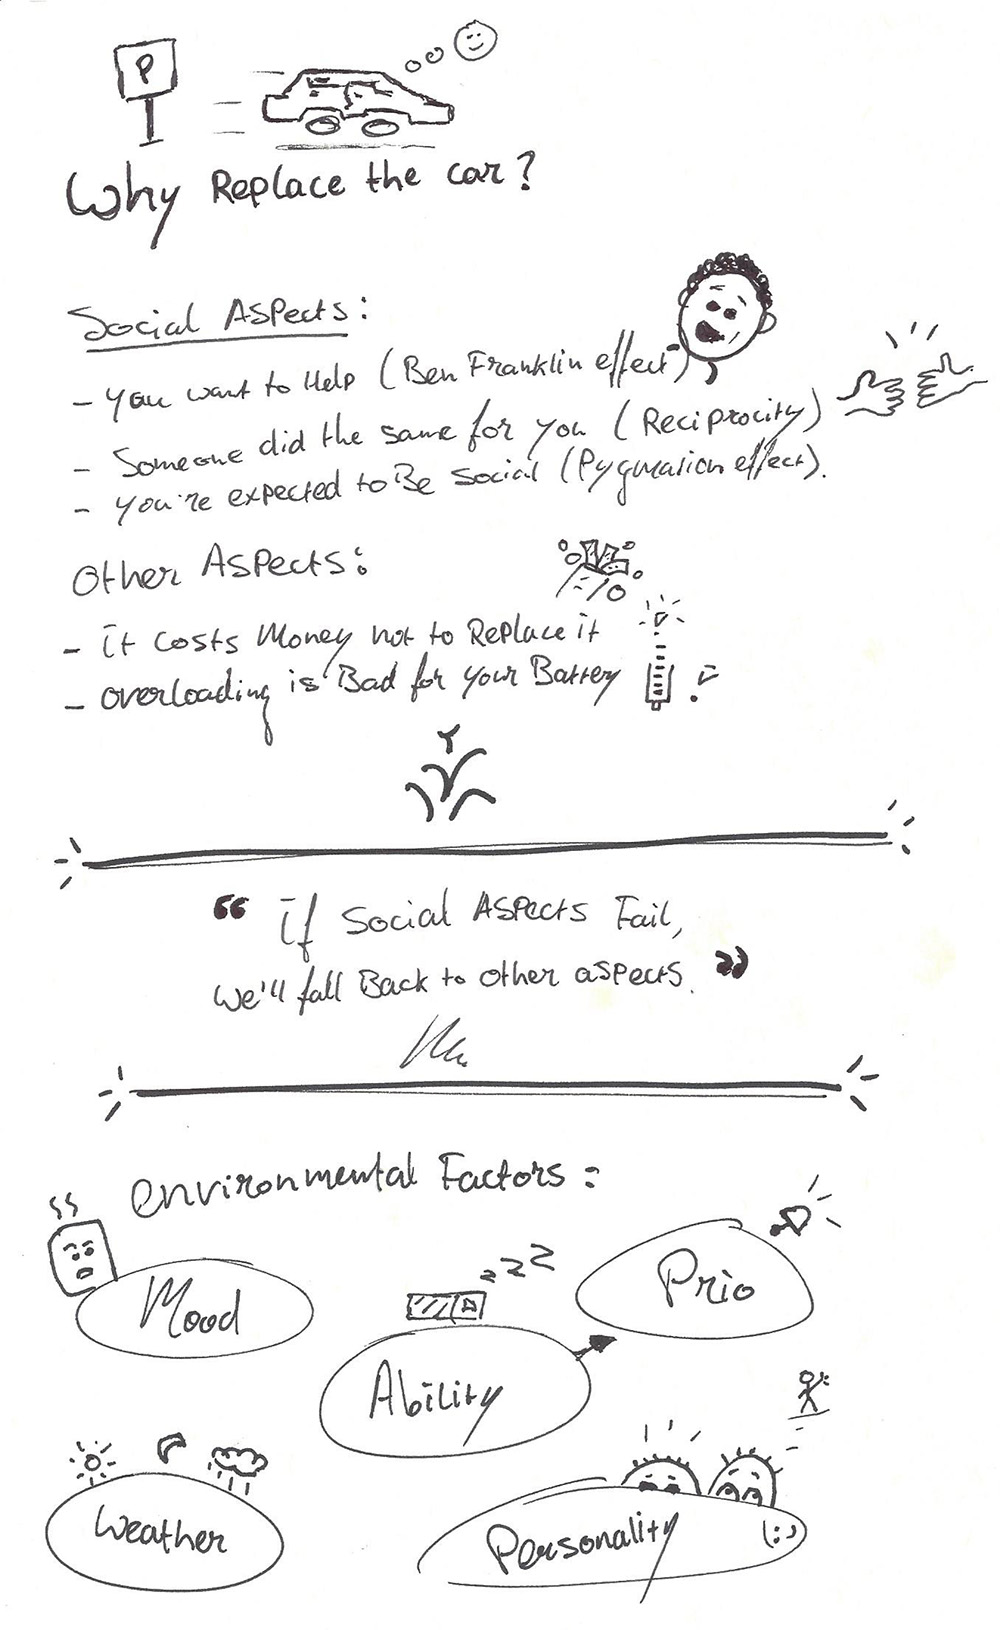 P
Why Replace the car?
Social Aspects:
- you want to Help (Ben Franklin effect)
- Someone did the same for you (Reciprocity)
- You're expected to Be social (Pygmalion effect).
Other Aspects:
- it costs Money not to Replace it
- overloading is Bad for your Battery
“ if social Aspects Fail,
we'll fall Back to other aspects. ”
environmental Factors:
zzz
Prio
Mood
Ability
Weather
Personality (:)